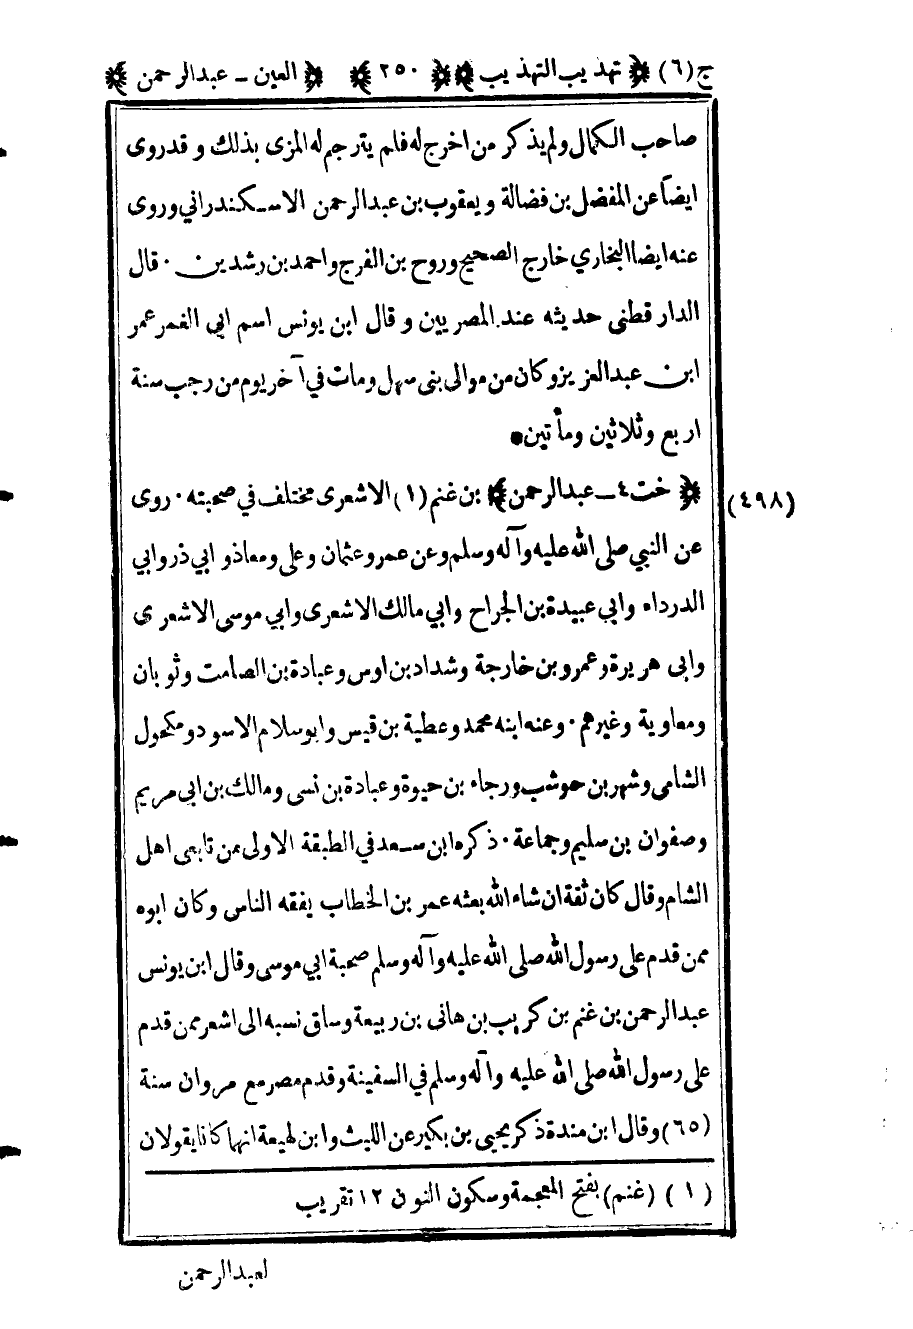 ج(٦) ﴿ تهذيب التهذيب ﴾ ﴿ ٢٥٠ ﴾ ﴿ العين – عبدالرحمن ﴾
صاحب الكمال ولم يذكر من اخرج له فلم يترجم له المزى بذلك و قد روى
ايضاً عن المفضل بن فضالة و يعقوب بن عبدالرحمن الاسكندراني وروى
عنه ايضا البخاري خارج الصحيح وروح بن الفرج واحمد بن رشدين ٠ قال
الدار قطنى حديثه عند المصريين و قال ابن يونس اسم ابي الغمر عمر
ابن عبدالعزيز وكان من موالى بنى سهل ومات في آخر يوم من رجب سنة
اربع وثلاثين ومأتين●
﴿ خت ٤ – عبدالرحمن﴾ بن غنم (١) الاشعرى مختلف في صحبته ٠ روى
(٤٩٨)
عن النبي صلى الله عليه وآله وسلم وعن عمر وعثمان وعلى ومعاذ و ابي ذر وابي
الدرداء وابي عبيدة بن الجراح وابي مالك الاشعرى وابي موسى الاشعرى
وابى هريرة وعمرو بن خارجة وشداد بن اوس وعبادة بن الصامت وثوبان
ومعاوية وغيرهم ٠ وعنه ابنه محمد وعطية بن قيس وابو سلام الاسود ومكحول
الشامى وشهر بن حوشب ورجاء بن حيوة وعبادة بن نسى ومالك بن ابى مريم
وصفوان بن سليم وجماعة ٠ ذكره ابن سعد في الطبقة الاولى من تابعى اهل
الشام وقال كان ثقة ان شاء الله بعثه عمر بن الخطاب يفقه الناس وكان ابوه
ممن قدم على رسول الله صلى الله عليه وآله وسلم صحبة ابي موسى وقال ابن يونس
عبدالرحمن بن غنم بن كريب بن هانى بن ربيعة وساق نسبه الى اشعر ممن قدم
على رسول الله صلى الله عليه وآله وسلم في السفينة وقدم مصر مع مروان سنة
(٦٥) وقال ابن مندة ذكر يحيى بن بكير عن الليث وابن لهيعة انهما كانا يقولان
(١) (غنم) بفتح المعجمة وسكون النون ١٢ تقريب
لعبدالرحمن